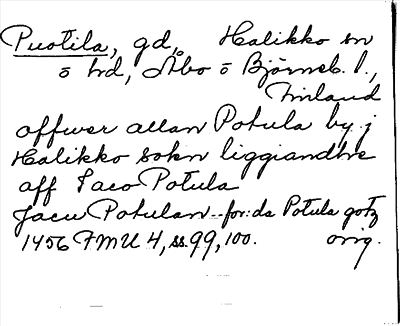 Puotila, gd, Halikko sn
o hd, Åbo o Björneb. l.,
Finland
offwer allan Potula by j
Halikko sokn liggiandhe
aff Jaco Potula
Jacu Potulan--for:da Potula gotz
1456 FMU 4, ss. 99, 100. orig.